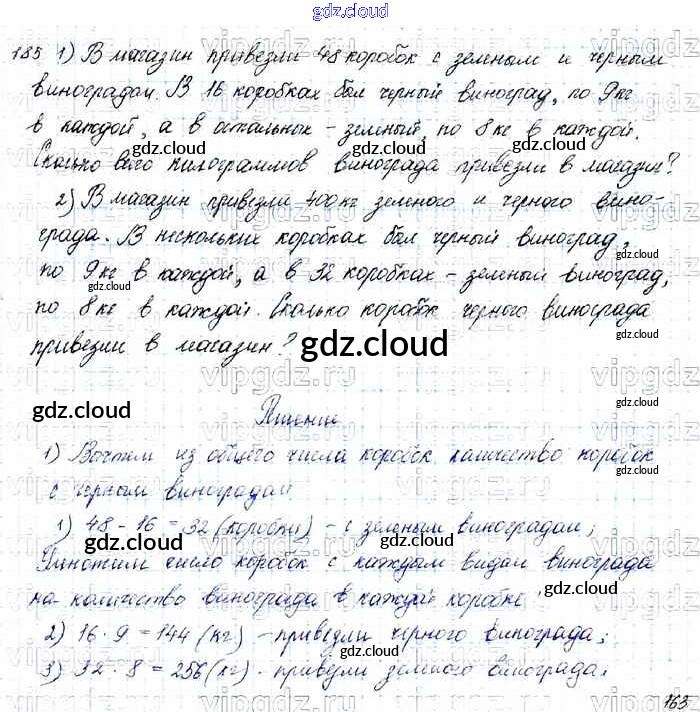 gdz.cloud
185 1) В магазин привезли 48 коробок с зеленым и черным
виноградом. В 16 коробках был черный виноград, по 9 кг
в каждой, а в остальных - зеленый, по 8 кг в каждой.
Сколько всего килограммов винограда привезли в магазин?
2) В магазин привезли 400 кг зеленого и черного вино-
града. В нескольких коробках был черный виноград,
по 9 кг в каждой, а в 32 коробках - зеленый виноград,
по 8 кг в каждой. Сколько коробок черного винограда
привезли в магазин?
gdz.cloud
gdz.cloud
Решение
1) Вычтем из общего числа коробок количество коробок
с черным виноградом
1) 48 - 16 = 32 (коробки) - с зеленым виноградом;
Умножим число коробок с каждым видом винограда
на количество винограда в каждой коробке
2) 16 · 9 = 144 (кг) - привезли черного винограда;
3) 32 · 8 = 256 (кг) - привезли зеленого винограда;
gdz.cloud
163